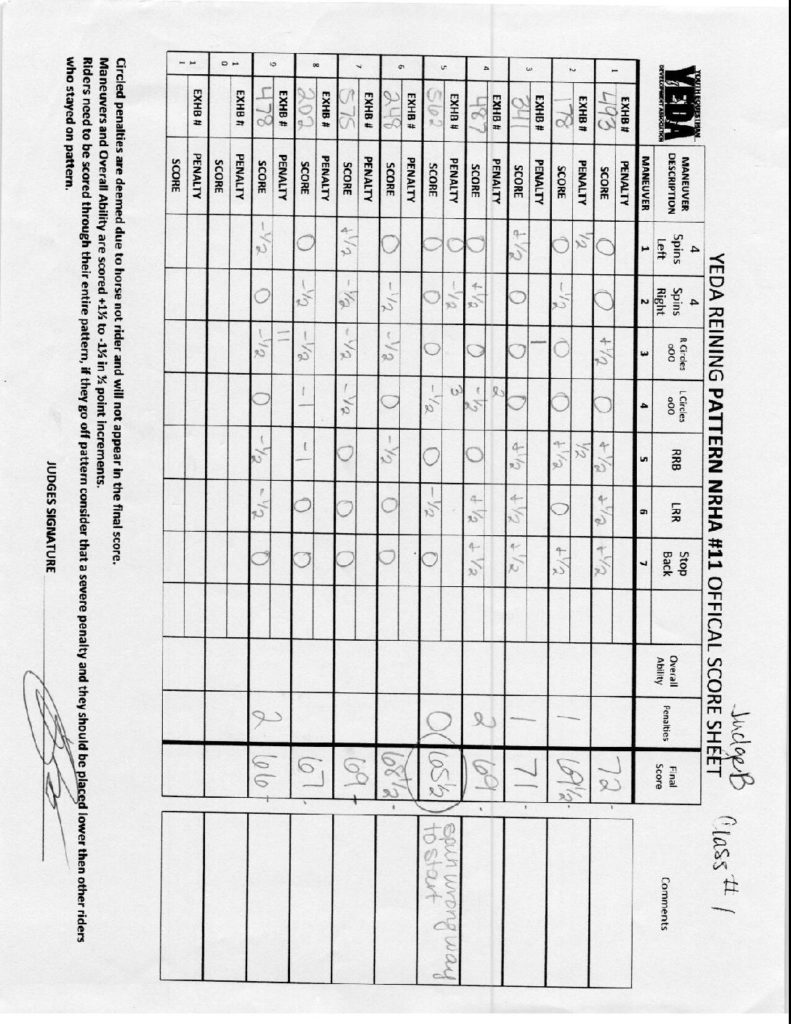 Judge B Class # 1
YEDA REINING PATTERN NRHA #11 OFFICAL SCORE SHEET
YOUTH EQUESTRIAN
YEDA
DEVELOPMENT ASSOCIATION
MANEUVER DESCRIPTION 4 Spins Left 4 Spins Right R Circles oOO L Circles oOO RRB LRR Stop Back Overall Ability Penalties Final Score Comments
MANEUVER 1 2 3 4 5 6 7
1 EXHB # 493 PENALTY
SCORE 0 0 +1/2 0 +1/2 +1/2 +1/2 72
2 EXHB # 178 PENALTY 1/2 1/2 1
SCORE 0 -1/2 0 0 +1/2 0 +1/2 69 1/2
3 EXHB # 341 PENALTY 1 1
SCORE +1/2 0 0 0 +1/2 +1/2 +1/2 71
4 EXHB # 487 PENALTY 2 2
SCORE 0 +1/2 0 -1/2 0 +1/2 +1/2 69
5 EXHB # 562 PENALTY 0 -1/2 3 0
SCORE 0 0 0 -1/2 0 -1/2 0 65 1/2 spin wrong way to start
6 EXHB # 248 PENALTY
SCORE 0 -1/2 -1/2 0 -1/2 0 0 68 1/2
7 EXHB # 575 PENALTY
SCORE +1/2 -1/2 -1/2 -1/2 0 0 0 69
8 EXHB # 202 PENALTY
SCORE 0 -1/2 -1/2 -1 -1 0 0 67
9 EXHB # 478 PENALTY 11 2
SCORE -1/2 0 -1/2 0 -1/2 -1/2 0 66
10 EXHB # PENALTY
SCORE
11 EXHB # PENALTY
SCORE
Circled penalties are deemed due to horse not rider and will not appear in the final score.
Maneuvers and Overall Ability are scored +1½ to -1½ in ½ point increments.
Riders need to be scored through their entire pattern, if they go off pattern consider that a severe penalty and they should be placed lower then other riders
who stayed on pattern.
JUDGES SIGNATURE